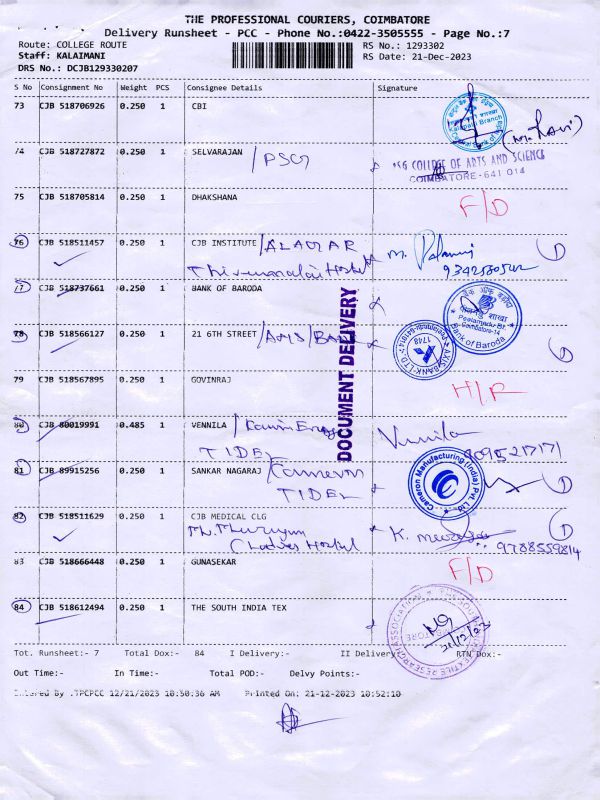 THE PROFESSIONAL COURIERS, COIMBATORE
Delivery Runsheet - PCC - Phone No.:0422-3505555 - Page No.:7
Route: COLLEGE ROUTE RS No.: 1293302
Staff: KALAIMANI RS Date: 21-Dec-2023
DRS No.: DCJB129330207
S No Consignment No Weight PCS Consignee Details Signature
73 CJB 518706926 0.250 1 CBI
74 CJB 518727872 0.250 1 SELVARAJAN /PSG
PSG COLLEGE OF ARTS AND SCIENCE
COIMBATORE-641 014
75 CJB 518705814 0.250 1 DHAKSHANA F/D
76 CJB 518511457 0.250 1 CJB INSTITUTE
77 CJB 518737661 0.250 1 BANK OF BARODA
Bank of Baroda
DOCUMENT DELIVERY
78 CJB 518566127 0.250 1 21 6TH STREET /AXIS/BANK
AXIS BANK LTD
1748
79 CJB 518567895 0.250 1 GOVINRAJ
80 CJB 80019991 0.485 1 VENNILA Vennila
TIDEL
81 CJB 89915256 0.250 1 SANKAR NAGARAJ /Cameron
TIDEL
Cameron Manufacturing (India) Pvt. Ltd
82 CJB 518511629 0.250 1 CJB MEDICAL CLG
9788559814
83 CJB 518666448 0.250 1 GUNASEKAR F/D
84 CJB 518612494 0.250 1 THE SOUTH INDIA TEX
21/12/23
Tot. Runsheet:- 7 Total Dox:- 84 I Delivery:- II Delivery:- RTN Dox:-
Out Time:- In Time:- Total POD:- Delvy Points:-
Entered By .TPCPCC 12/21/2023 10:50:36 AM Printed On: 21-12-2023 10:52:10